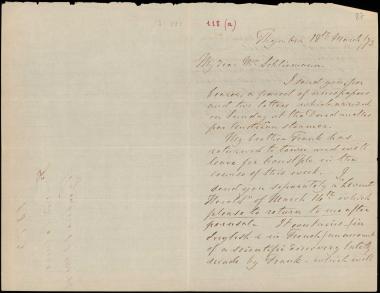 118 (a)
18th March /73
My dear Mr Schliemann
I send you per
bearer, a parcel of newspapers
and two letters which arrived
on Sunday at the Dardanelles
per Austrian steamer.
My brother Frank has
returned to town and will
leave for Constple in the
course of this week. I
send you separately a Levant
Herald of March 14th which
please to return to me after
perusal. It contains, in
English & in French, an account
of a scientific discovery lately
made by Frank - which will